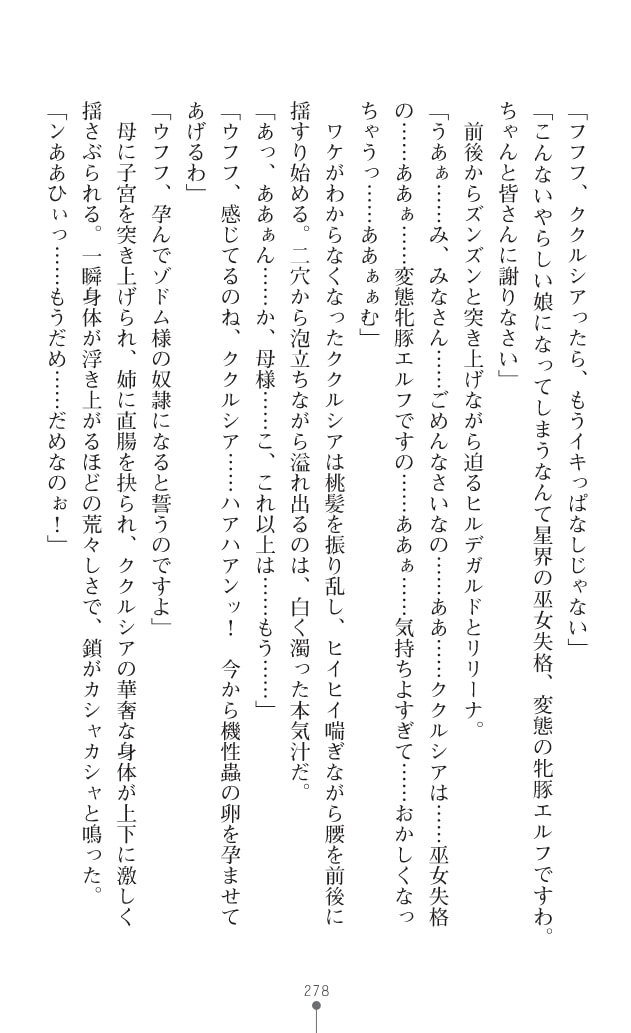 「フフフ、ククルシアったら、もうイキっぱなしじゃない」
「こんないやらしい娘になってしまうなんて星界の巫女失格、変態の牝豚エルフですわ。
ちゃんと皆さんに謝りなさい」
前後からズンズンと突き上げながら迫るヒルデガルドとリリーナ。
「うあぁ……み、みなさん……ごめんなさいなの……ああ……ククルシアは……巫女失格
の……ああぁ……変態牝豚エルフですの……ああぁ……気持ちよすぎて……おかしくなっ
ちゃうっ……ああぁぁむ」
ワケがわからなくなったククルシアは桃髪を振り乱し、ヒイヒイ喘ぎながら腰を前後に
揺すり始める。二穴から泡立ちながら溢れ出るのは、白く濁った本気汁だ。
「あっ、ああぁん……か、母様……こ、これ以上は……もう……」
「ウフフ、感じてるのね、ククルシア……ハアハアンッ！　今から機性蟲の卵を孕ませて
あげるわ」
「ウフフ、孕んでゾドム様の奴隷になると誓うのですよ」
母に子宮を突き上げられ、姉に直腸を抉られ、ククルシアの華奢な身体が上下に激しく
揺さぶられる。一瞬身体が浮き上がるほどの荒々しさで、鎖がカシャカシャと鳴った。
「ンああひぃっ……もうだめ……だめなのぉ！」
278